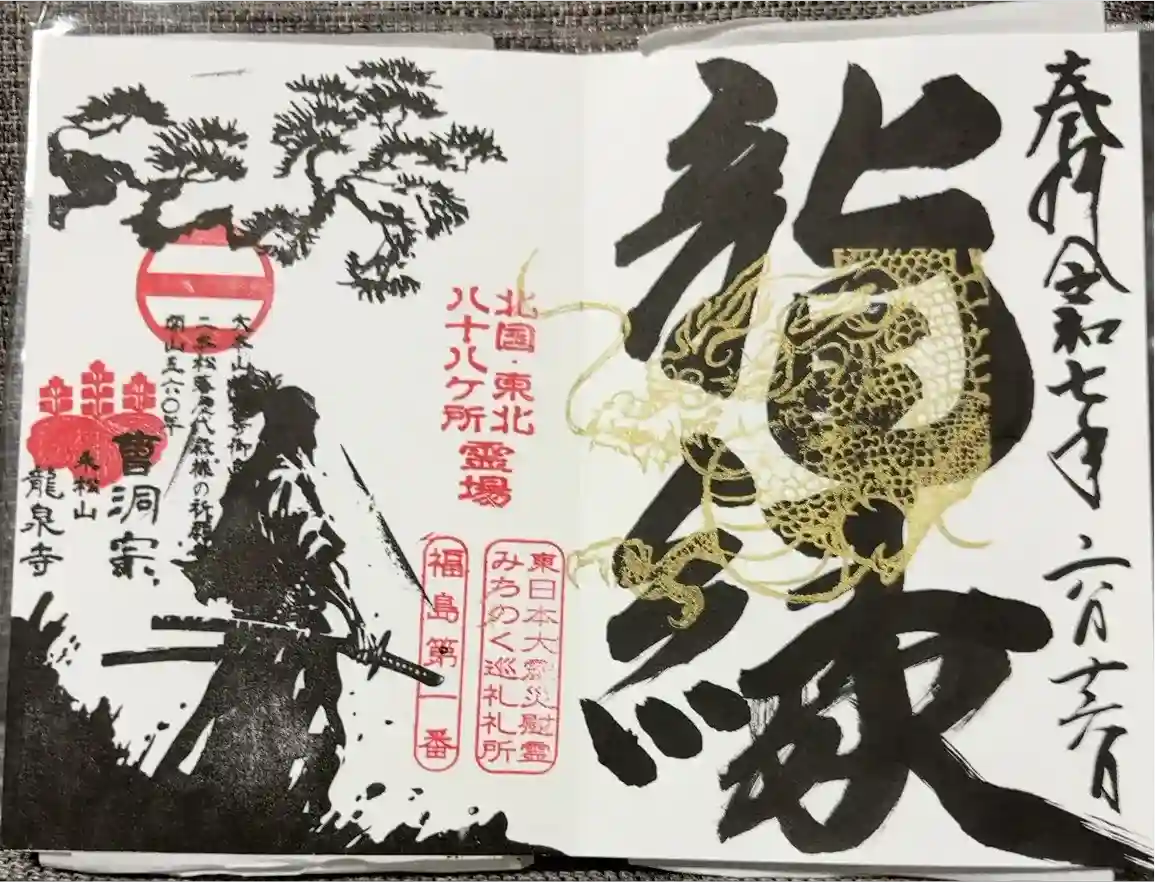 奉拝 令和七年 六月十六日
龍縁
北国・東北
八十八ケ所 霊場
東日本大震災慰霊
みちのく巡礼札所
福島第一番
大本山
二本松藩歴代殿様の祈願
開山五六〇年
曹洞宗
永松山
龍泉寺